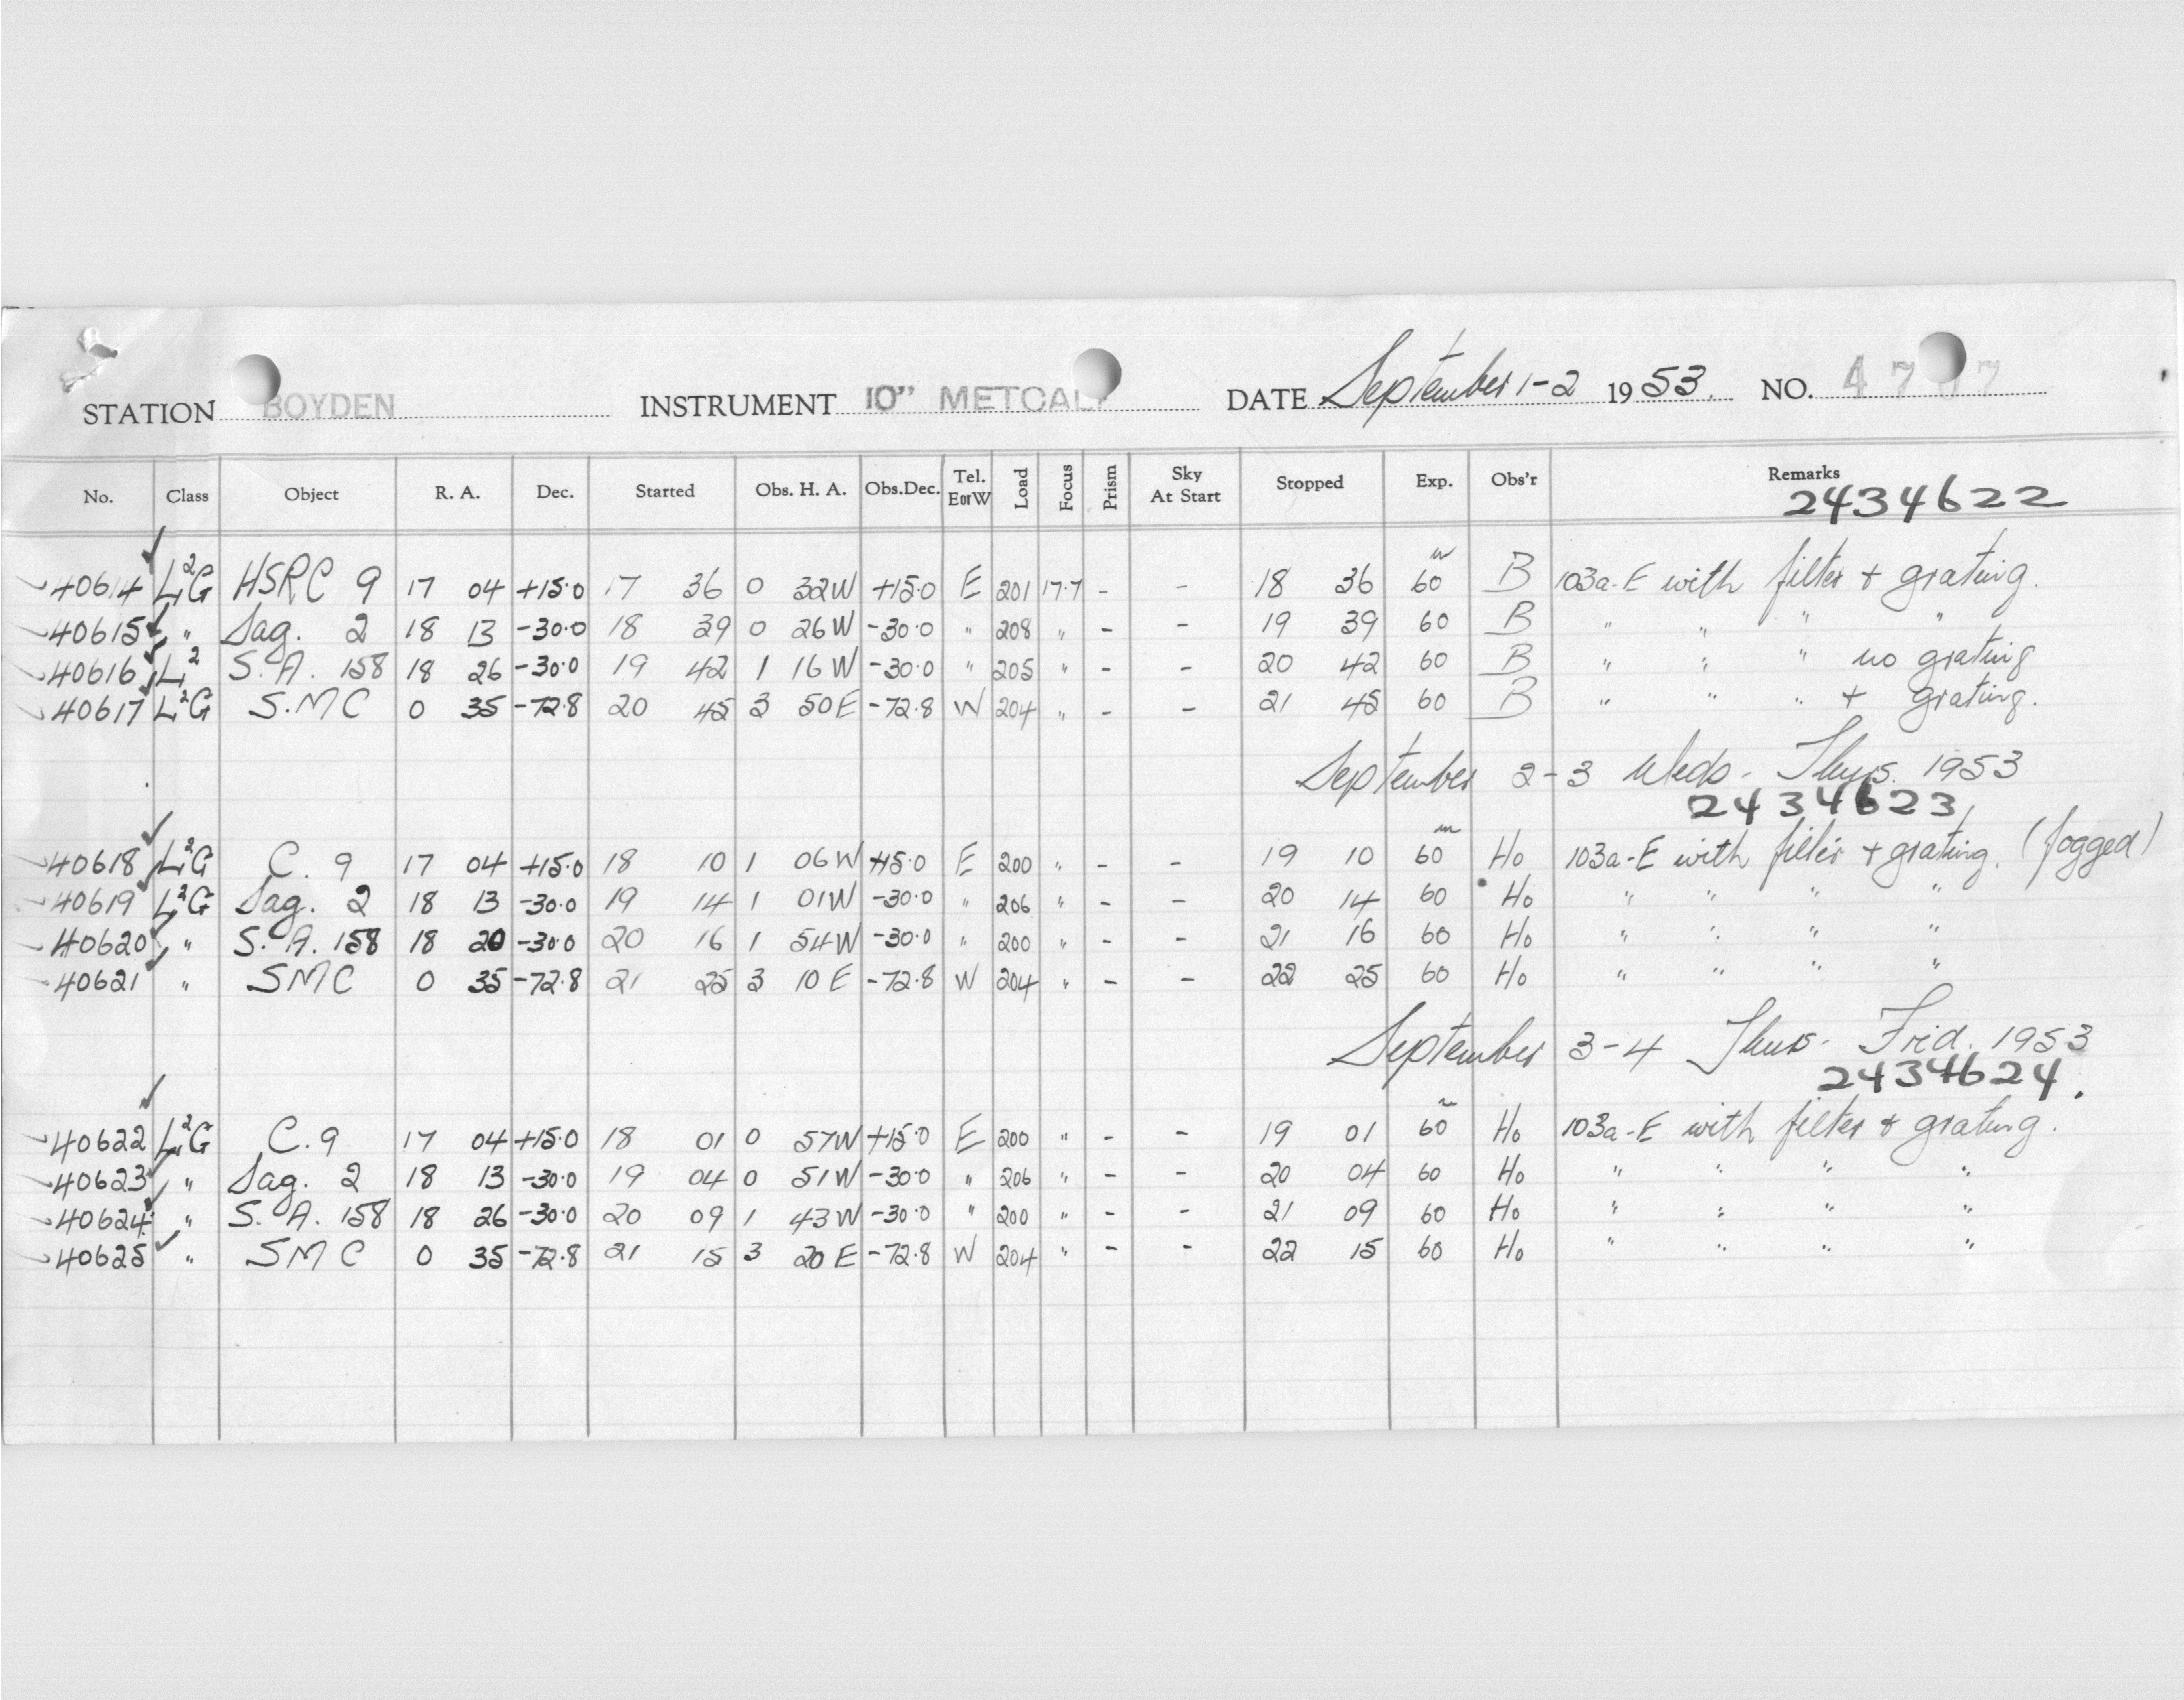 STATION BOYDEN INSTRUMENT 10" METCALF DATE September 1-2 1953. NO.
No. Class Object R. A. Dec. Started Obs. H. A. Obs.Dec. Tel. E or W Load Focus Prism Sky At Start Stopped Exp. Obs'r Remarks
2434622
40614 L²G HSRC 9 17 04 +15.0 17 36 0 32W +15.0 E 201 17.7 - - 18 36 60m B 103a-E with filter + grating.
40615 " Sag. 2 18 13 -30.0 18 39 0 26W -30.0 " 208 " - - 19 39 60 B " " " "
40616 L² S.A. 158 18 26 -30.0 19 42 1 16W -30.0 " 205 " - - 20 42 60 B " " " no grating
40617 L²G S.MC 0 35 -72.8 20 45 3 50E -72.8 W 204 " - - 21 45 60 B " " " + grating.
September 2-3 Weds. Thurs. 1953
2434623
40618 L²G C. 9 17 04 +15.0 18 10 1 06W +15.0 E 200 " - - 19 10 60m Ho 103a-E with filter + grating. (fogged)
40619 L²G Sag. 2 18 13 -30.0 19 14 1 01W -30.0 " 206 " - - 20 14 60 Ho " " " "
40620 " S.A. 158 18 20 -30.0 20 16 1 54W -30.0 " 200 " - - 21 16 60 Ho " " " "
40621 " SMC 0 35 -72.8 21 25 3 10 E -72.8 W 204 " - - 22 25 60 Ho " " " "
September 3-4 Thurs. Frid. 1953
2434624.
40622 L²G C. 9 17 04 +15.0 18 01 0 57W +15.0 E 200 " - - 19 01 60m Ho 103a-E with filter & grating.
40623 " Sag. 2 18 13 -30.0 19 04 0 51W -30.0 " 206 " - - 20 04 60 Ho " " " "
40624 " S.A. 158 18 26 -30.0 20 09 1 43W -30.0 " 200 " - - 21 09 60 Ho " " " "
40625 " SMC 0 35 -72.8 21 15 3 20 E -72.8 W 204 " - - 22 15 60 Ho " " " "